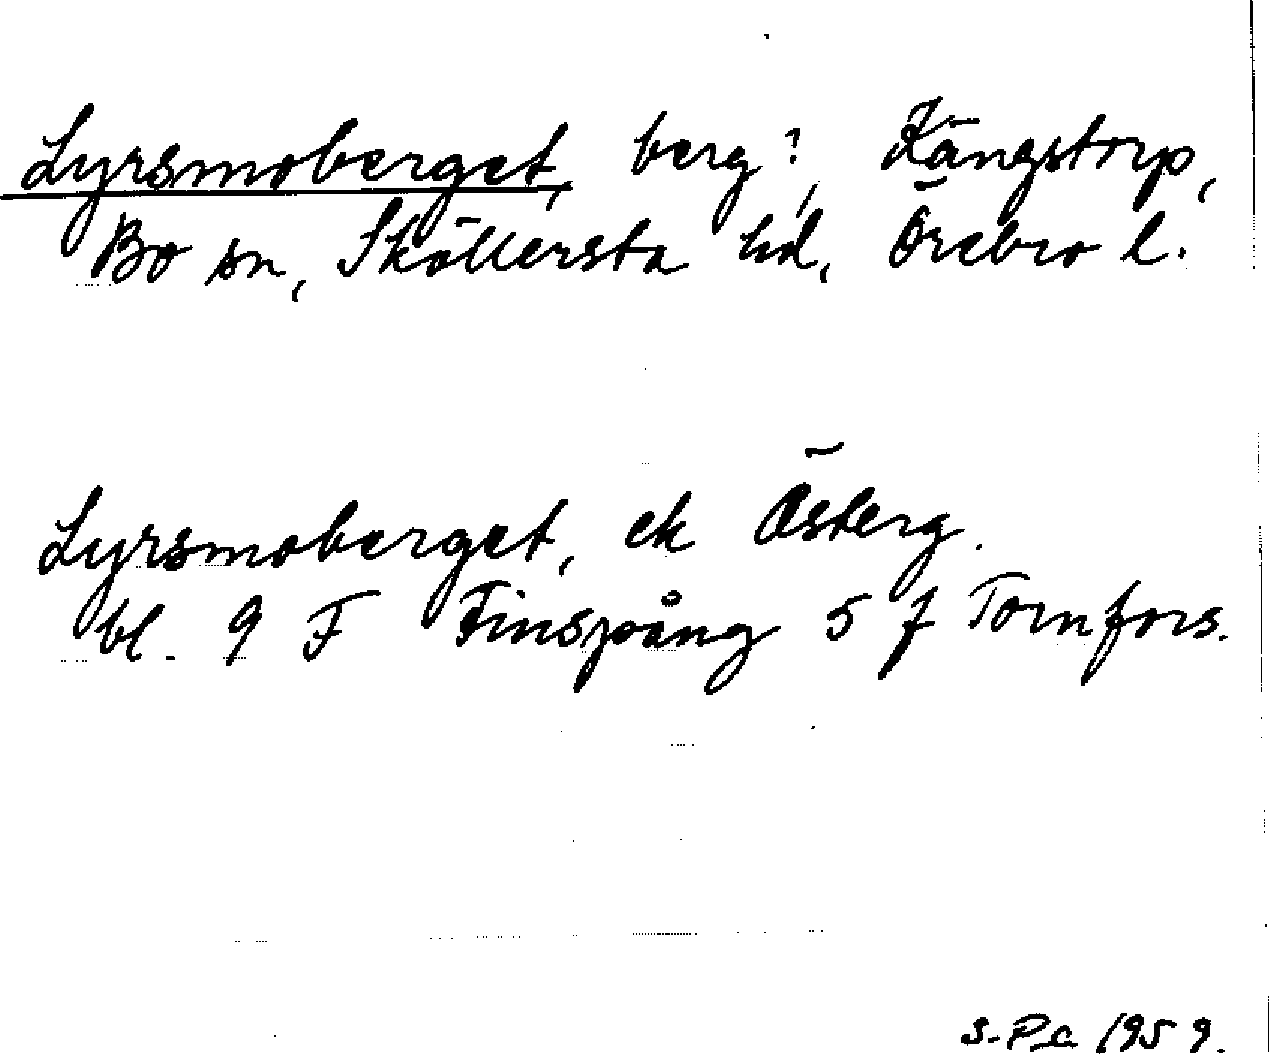 Lyrsmoberget, berg?, Kängstorp,
Bo sn, Sköllersta hd, Örebro l.
Lyrsmoberget, ek Österg.
bl. 9 F Finspång 5 f Tornfors.
S-Pe 1959.